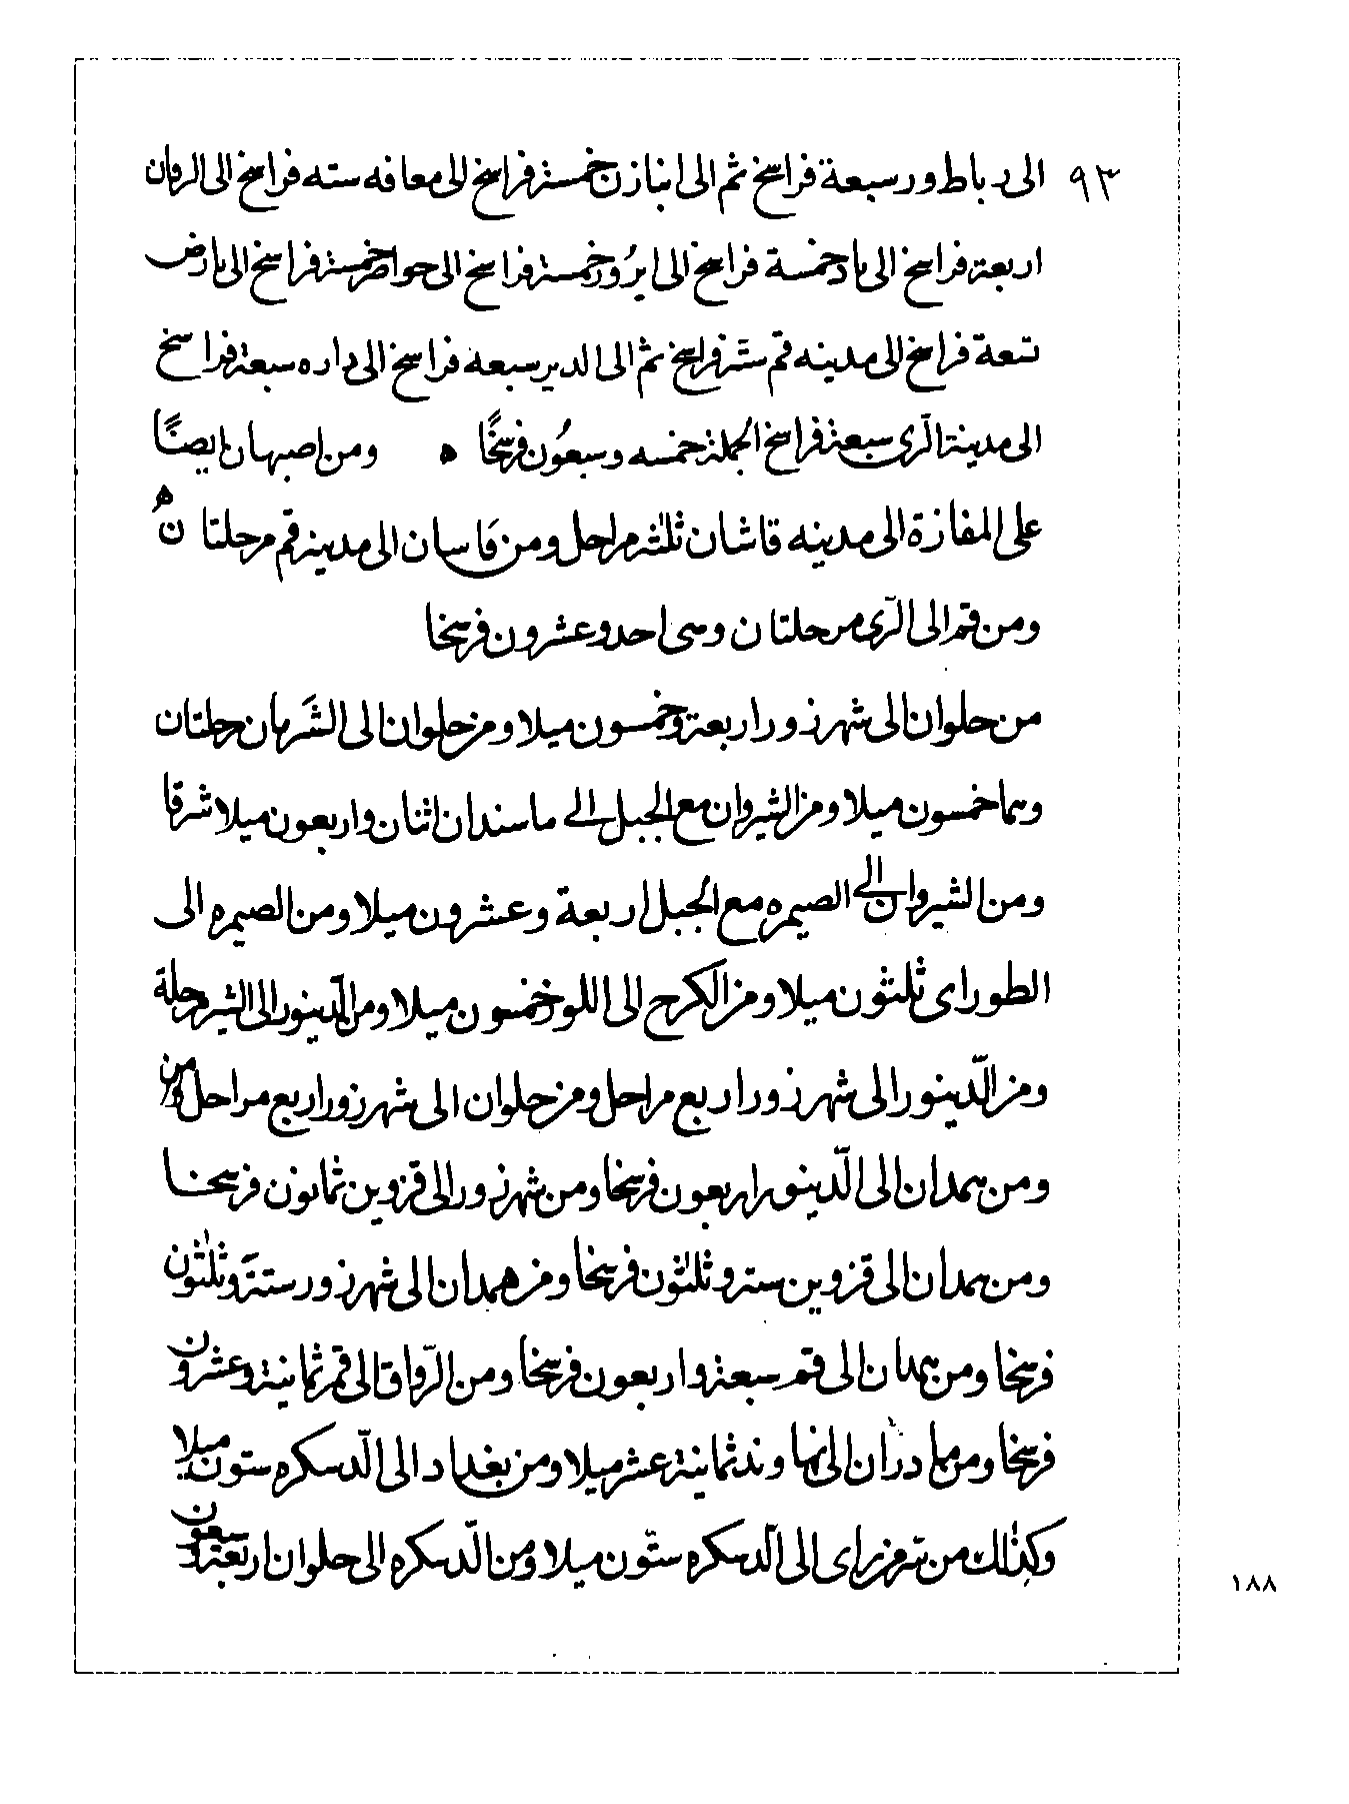 ٩٣
الى رباط ور سبعة فراسخ ثم الى انبازن خمسة فراسخ الى معافه سته فراسخ الى الروان
اربعة فراسخ الى باد خمسة فراسخ الى ابروز خمسة فراسخ الى حواضر خمسة فراسخ الى بارض
تسعة فراسخ الى مدينه قم ستة فراسخ ثم الى الدير سبعه فراسخ الى داره سبعة فراسخ
الى مدينة الرّى سبعة فراسخ الجملة خمسه وسبعُون فرسخًا ه ومن اصبهان ايضًا
على المفازة الى مدينه قاشان ثلثه مراحل ومن قاسان الى مدينه قم مرحلتان ه
ومن قم الى الرّى مرحلتان وهى احد وعشرون فرسخا
من حلوان الى شهرزور اربعة وخمسون ميلا ومن حلوان الى الشَروان مرحلتان
وهما خمسون ميلا ومن الشيروان مع الجبل الى ماسبندان اثنان واربعون ميلا شرقا
ومن الشيروان الى الصيمره مع الجبل اربعة وعشرون ميلا ومن الصيمره الى
الطوراى ثلثون ميلا ومن الكرج الى اللور خمسون ميلا ومن الدّينور الى الشير مرحلة
ومن الدّينور الى شهرزور اربع مراحل ومن حلوان الى شهرزور اربع مراحل ومن
ومن همدان الى الدّينور اربعون فرسخا ومن شهرزور الى قزوين ثمانون فرسخا
ومن همدان الى قزوين ستة وثلثون فرسخا ومن همدان الى شهرزور ستة وثلثون
فرسخا ومن همدان الى قم سبعة واربعون فرسخا ومن الرّواق الى قم ثمانية وعشرون
فرسخا ومن مادران الى نهاوند ثمانية عشر ميلا ومن بغداد الى الدّسكره ستون ميلا
وكذلك من الى الدّسكره ستّون ميلا ومن الدّسكره الى حلوان اربعة وسبعون
١٨٨